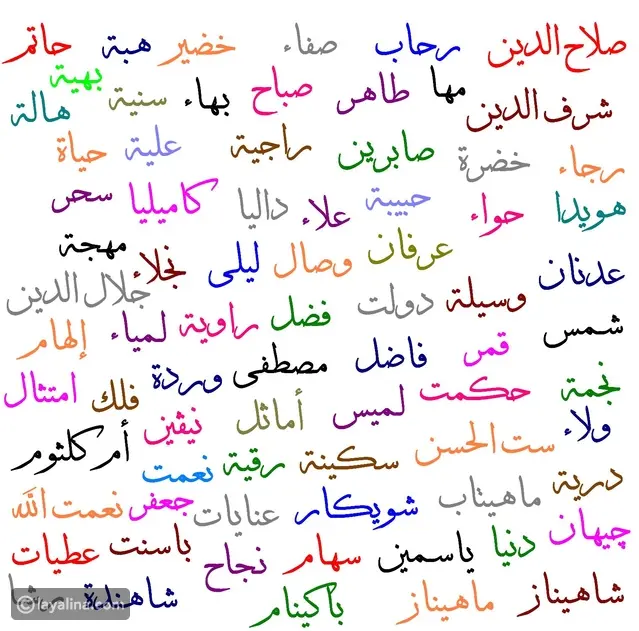 صلاح الدين رحاب صفاء خضير هبة حاتم
شرف الدين مها طاهر صباح بهاء سنية بهية هالة
رجاء خضرة صابرين راجية علية حياة
هويدا حواء حبيبة علاء داليا كاميليا سحر
عدنان عرفان وصال ليلى نجلاء مهجة
شمس وسيلة دولت فضل راوية لمياء جلال الدين إلهام
نجمة قمر حكمت فاضل مصطفى وردة فلك امتثال
ولاء ست الحسن لميس أماثل نيڤين أم كلثوم
درية ماهيتاب سكينة رقية نعمت
چيهان دنيا شويكار عنايات جعفر نعمت الله
شاهيناز ياسمين سهام نجاح باسنت عطيات
ماهيناز باكينام شاهندة رشا
layalina.com